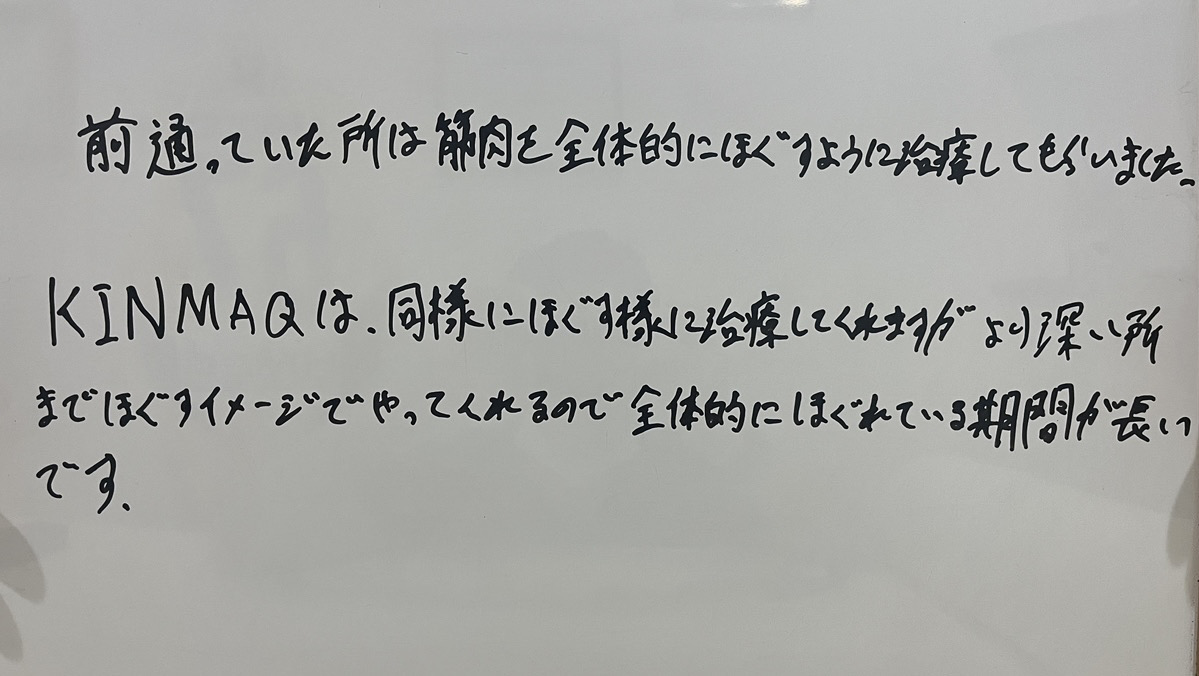 前通っていた所は筋肉を全体的にほぐすように治療してもらいました。
KINMAQは、同様にほぐす様に治療してくれますがより深い所
までほぐすイメージでやってくれるので全体的にほぐれている期間が長い
です。